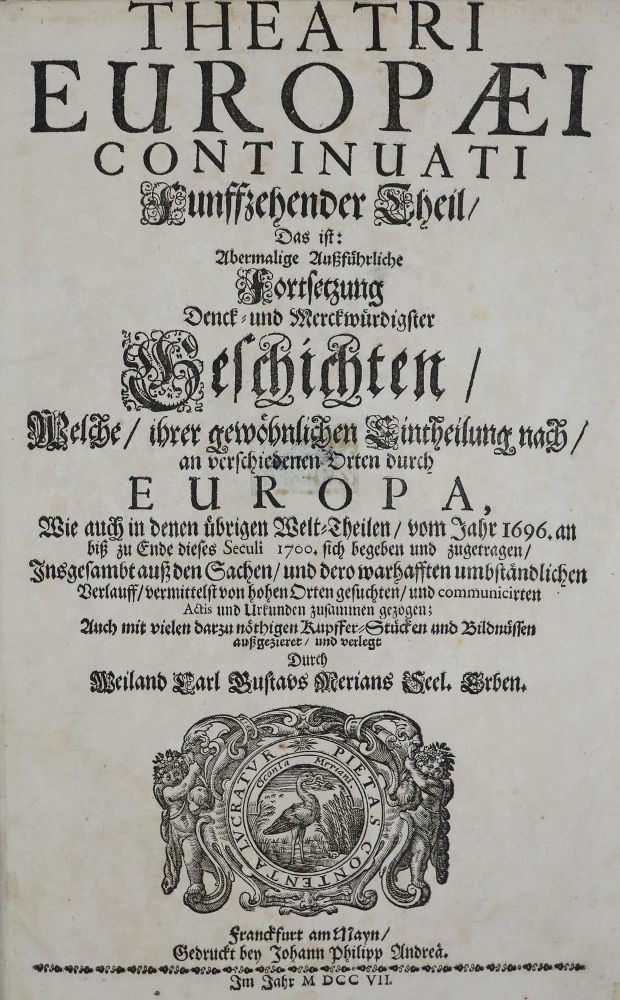 THEATRI
EUROPÆI
CONTINUATI
Funffzehender Theil/
Das ist:
Abermalige Außführliche
Fortsetzung
Denck- und Merckwürdigster
Geschichten/
Welche/ ihrer gewöhnlichen Eintheilung nach/
an verschiedenen Orten durch
EUROPA,
Wie auch in denen übrigen Welt-Theilen/ vom Jahr 1696. an
biß zu Ende dieses Seculi 1700. sich begeben und zugetragen/
Insgesambt auß den Sachen/ und dero warhafften umbständlichen
Verlauff/ vermittelst von hohen Orten gesuchten/ und communicirten
Actis und Urkunden zusammen gezogen;
Auch mit vielen darzu nöthigen Kupffer-Stücken und Bildnüssen
außgezieret/ und verlegt
Durch
Weiland Carl Gustavs Merians Seel. Erben.
PIETAS CONTENTA LUCRATVR
Ciconia Meriani.
Franckfurt am Mayn/
Gedruckt bey Johann Philipp Andreä.
Im Jahr M DCC VII.